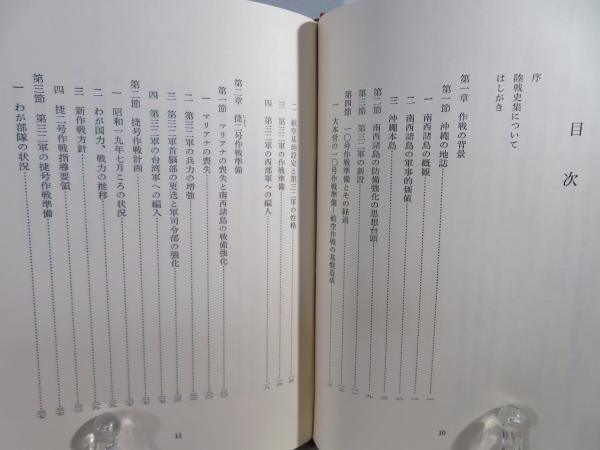 目次
序
陸戦史集について
はしがき
第一章 作戦の背景
第一節 沖縄の地誌
一 南西諸島の概観
二 南西諸島の軍事的価値
三 沖縄本島
第二節 南西諸島の防備強化の思想台頭
第三節 第三二軍の新設
第四節 一〇号作戦準備とその経過
一 大本営の一〇号作戦準備―航空作戦の基盤造成
10
二 航空基地設定と第三二軍の性格
三 第三二軍の作戦準備
四 第三二軍の西部軍への編入
第二章 捷二号作戦準備
第一節 マリアナの喪失と南西諸島の戦備強化
一 マリアナの喪失
二 第三二軍の兵力の増強
三 第三二軍首脳部の更迭と軍司令部の強化
四 第三二軍の台湾軍への編入
第二節 捷号作戦計画
一 昭和一九年七月ころの状況
二 わが国力、戦力の推移
三 新作戦方針
四 捷二号作戦指導要領
第三節 第三二軍の捷号作戦準備
一 わが部隊の状況
11